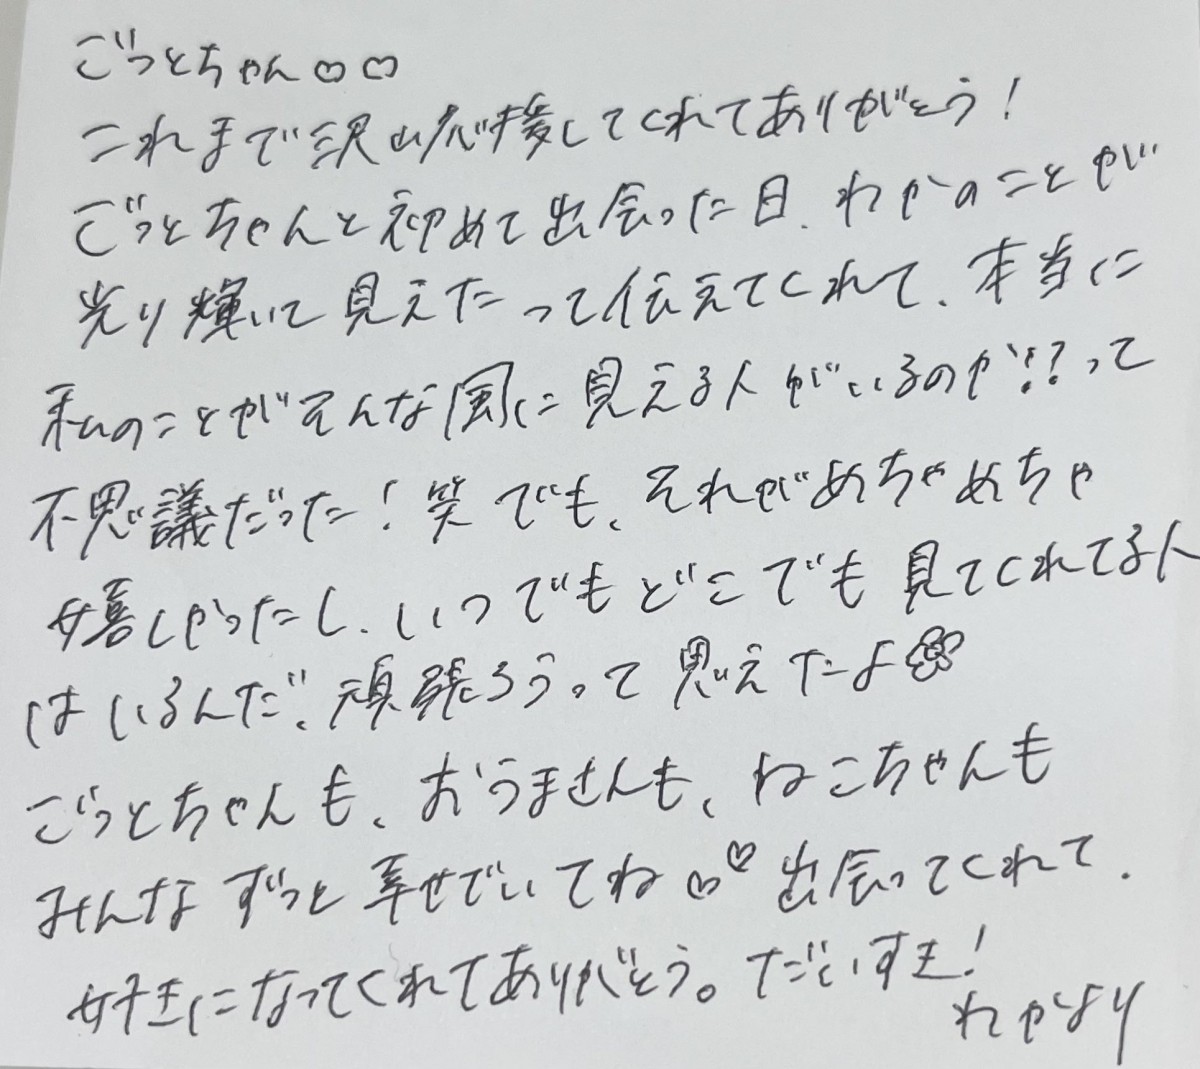 ごっとちゃん♡♡
これまで沢山応援してくれてありがとう!
ごっとちゃんと初めて出会った日、わかのことが
光り輝いて見えたって伝えてくれて、本当に
私のことがそんな風に見える人がいるのか!?って
不思議だった!笑 でも、それがめちゃめちゃ
嬉しかったし、いつでもどこでも見てくれてる人
はいるんだ、頑張ろうって思えたよ
ごっとちゃんも、おうまさんも、ねこちゃんも
みんなずっと幸せでいてね♡♡出会ってくれて、
好きになってくれてありがとう。だいすき!
わかより